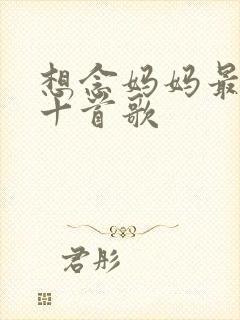 想念妈妈最
十首歌
君彤